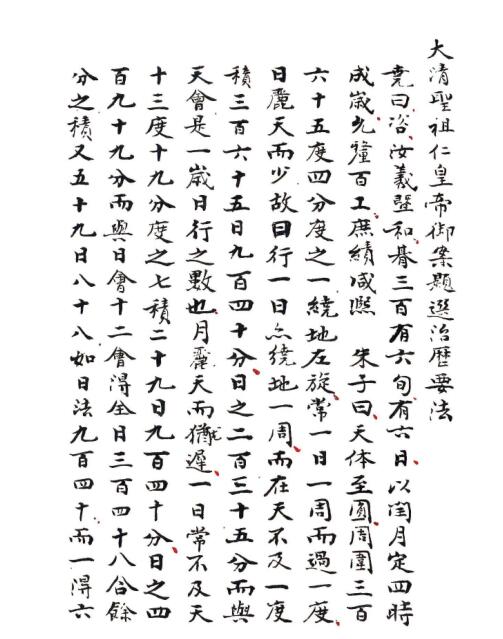 大清聖祖仁皇帝御案題選治曆要法
堯曰咨汝羲曁和朞三百有六旬有六日以閏月定四時
成歲允釐百工庶績咸熙　朱子曰天体至圓周圍三百
六十五度四分度之一繞地左旋常一日一周而過一度
日麗天而少故日行一日亦繞地一周而在天不及一度
積三百六十五日九百四十分日之二百三十五分而與
天會是一歲日行之數也月麗天而尤遲一日常不及天
十三度十九分度之七積二十九日九百四十分日之四
百九十九分而與日會十二會得全日三百四十八合餘
分之積又五十九日八十八如日法九百四十而一得六